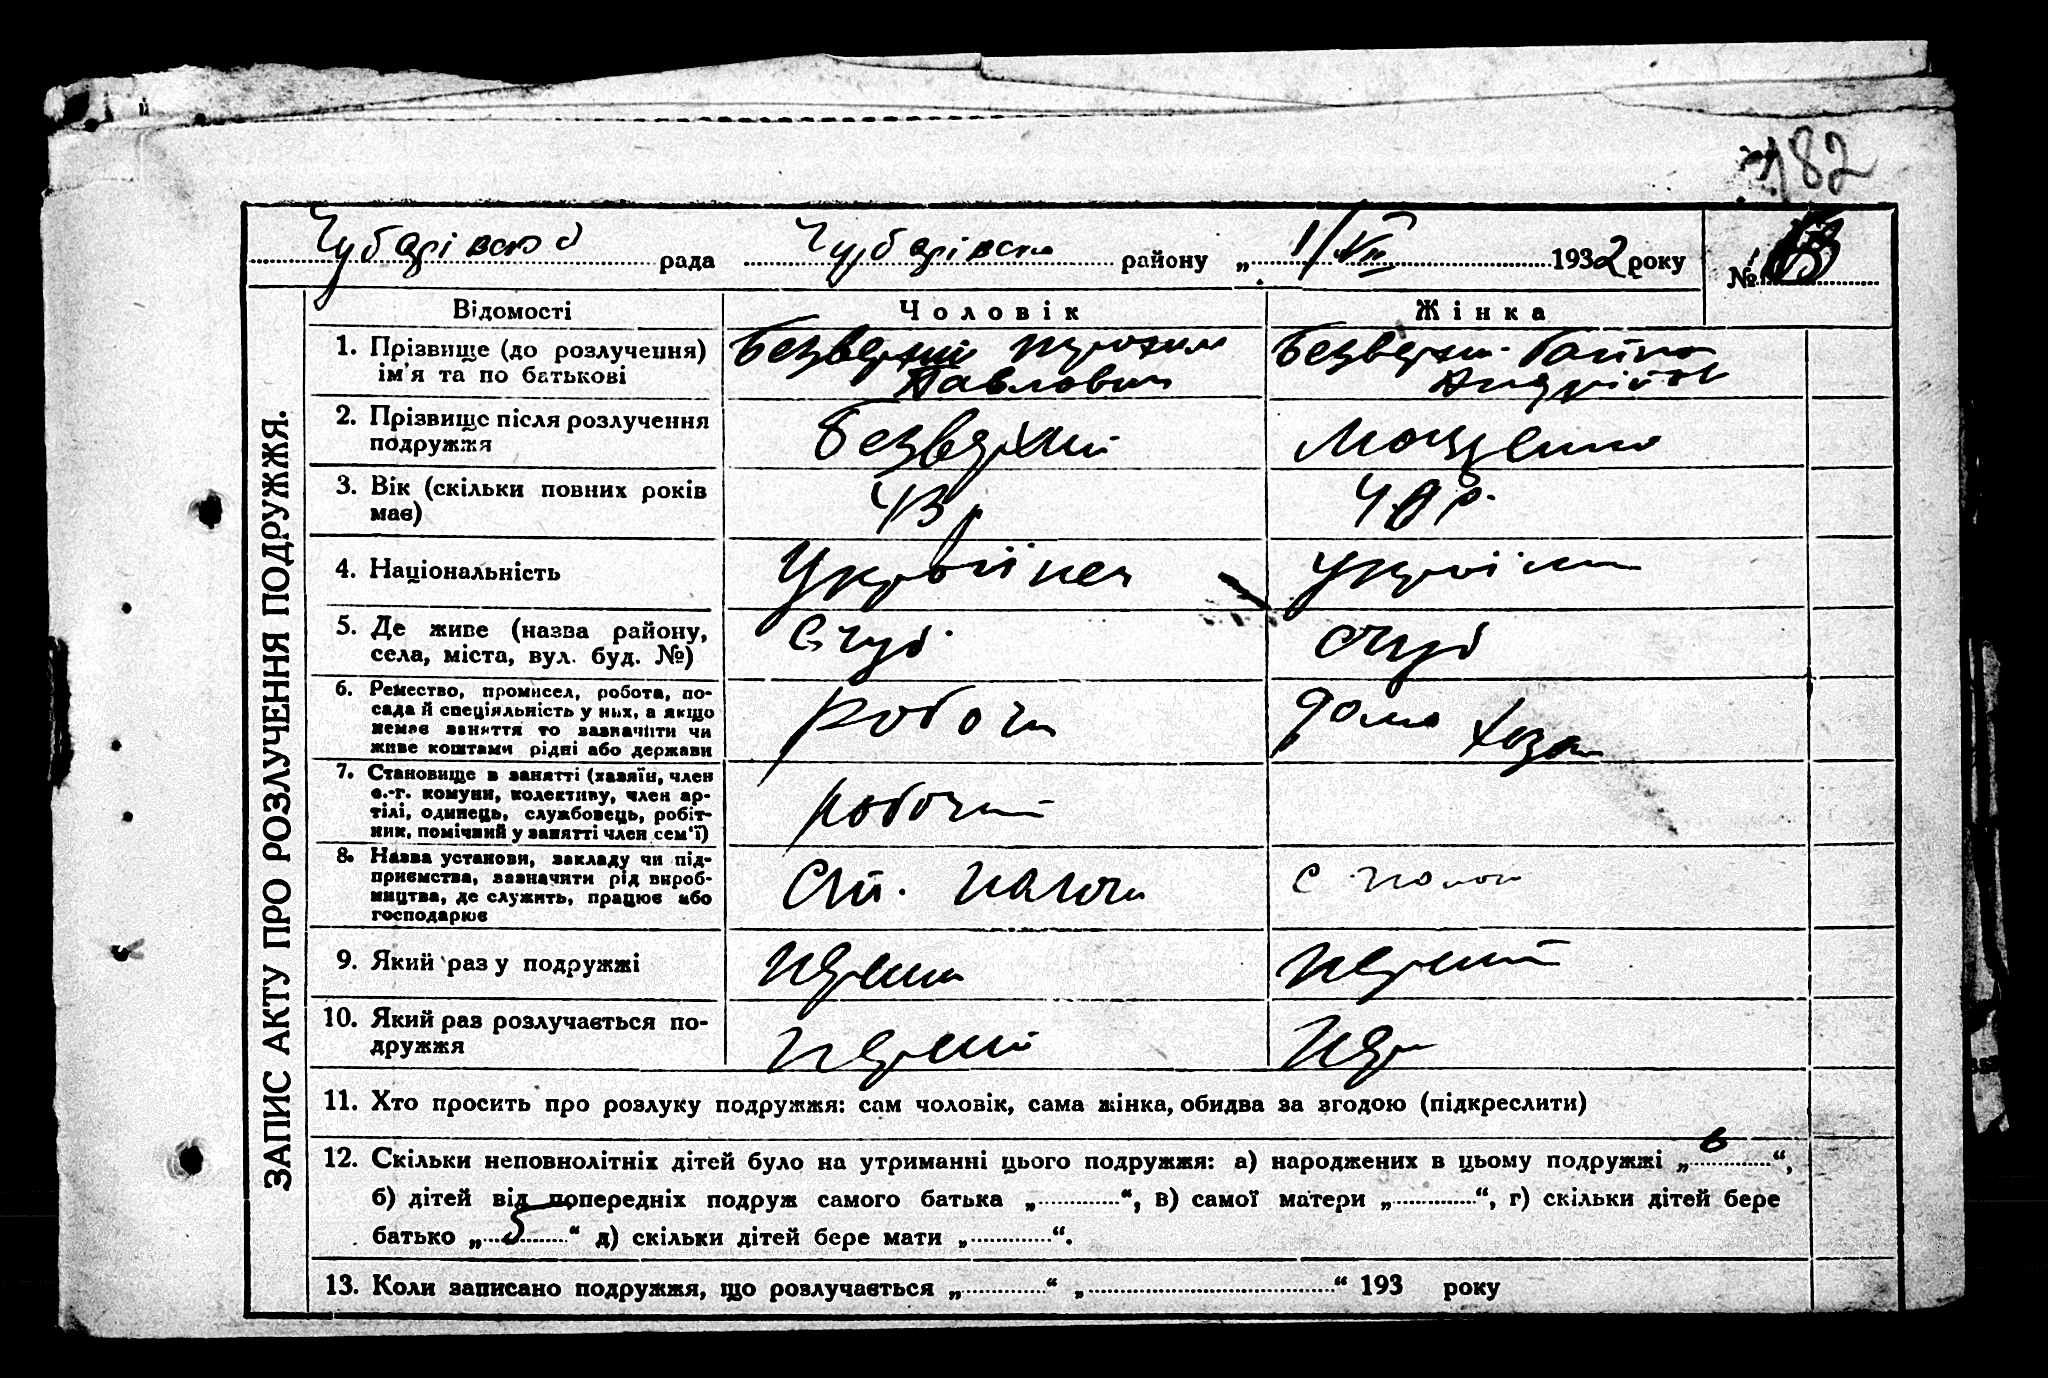 182
Чубарівської рада Чубарівськ району „ 1/VII 1932 року №
Відомості Чоловік Жінка
1. Прізвище (до розлучення) ім'я та по батькові
Безверхий
Павлович
Безверхи
Андріїв
2. Прізвище після розлучення подружжя
Безверхий
3. Вік (скільки повних років має)
43 р
4. Національність
Українец
україн
5. Де живе (назва району, села, міста, вул. буд. №)
с Чуб.
с Чуб
6. Ремество, промисел, робота, посада й спеціяльність у них, а якщо немає заняття то зазначити чи живе коштами рідні або держави
робочи
дома хозя
7. Становище в занятті (хазяїн, член с.-г. комуни, колективу, член артілі, одинець, службовець, робітник, помічний у занятті член сем'ї)
робочий
8. Назва установи, закладу чи підприємства, зазначити рід виробництва, де служить, працює або господарює
Ст.
с
9. Який раз у подружжі
перший
перший
10. Який раз розлучається подружжя
перший
пер
11. Хто просить про розлуку подружжя: сам чоловік, сама жінка, обидва за згодою (підкреслити)
12. Скільки неповнолітніх дітей було на утриманні цього подружжя: а) народжених в цьому подружжі „ 6 “,
б) дітей від попередніх подруж самого батька „ “, в) самої матери „ “, г) скільки дітей бере
батько „ 5 “ д) скільки дітей бере мати „ “.
13. Коли записано подружжя, що розлучається „ “ „ “ 193 року
ЗАПИС АКТУ ПРО РОЗЛУЧЕННЯ ПОДРУЖЖЯ.